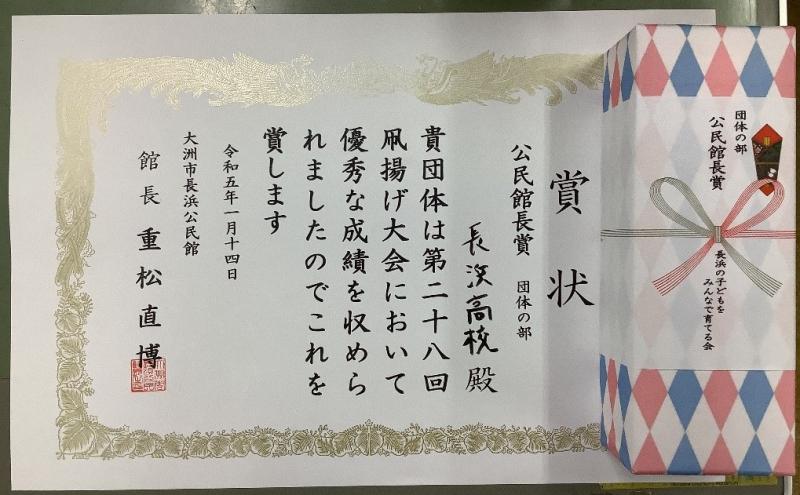 賞状
公民館長賞 団体の部
長浜高校殿
貴団体は第二十八回
凧揚げ大会において
優秀な成績を収めら
れましたのでこれを
賞します
令和五年一月十四日
大洲市長浜公民館
館長 重松直博
団体の部
公民館長賞
長浜の子どもを
みんなで育てる会